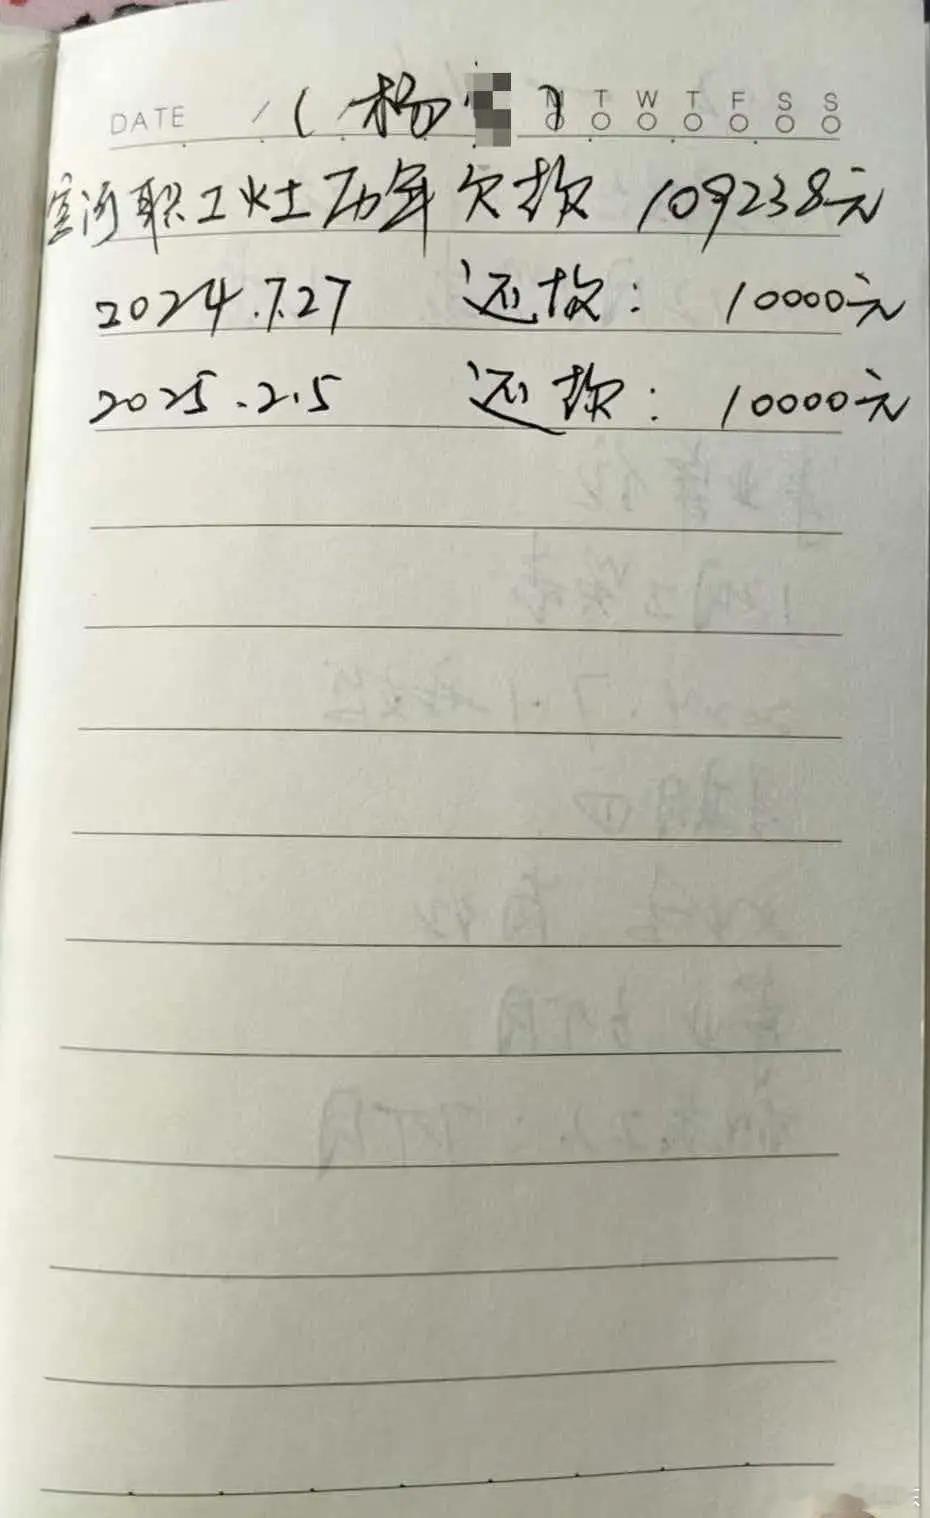 DATE / (杨 ) T W T F S S
职工灶历年欠款 109238元
2024.7.27 还款: 10000元
2025.2.5 还款: 10000元